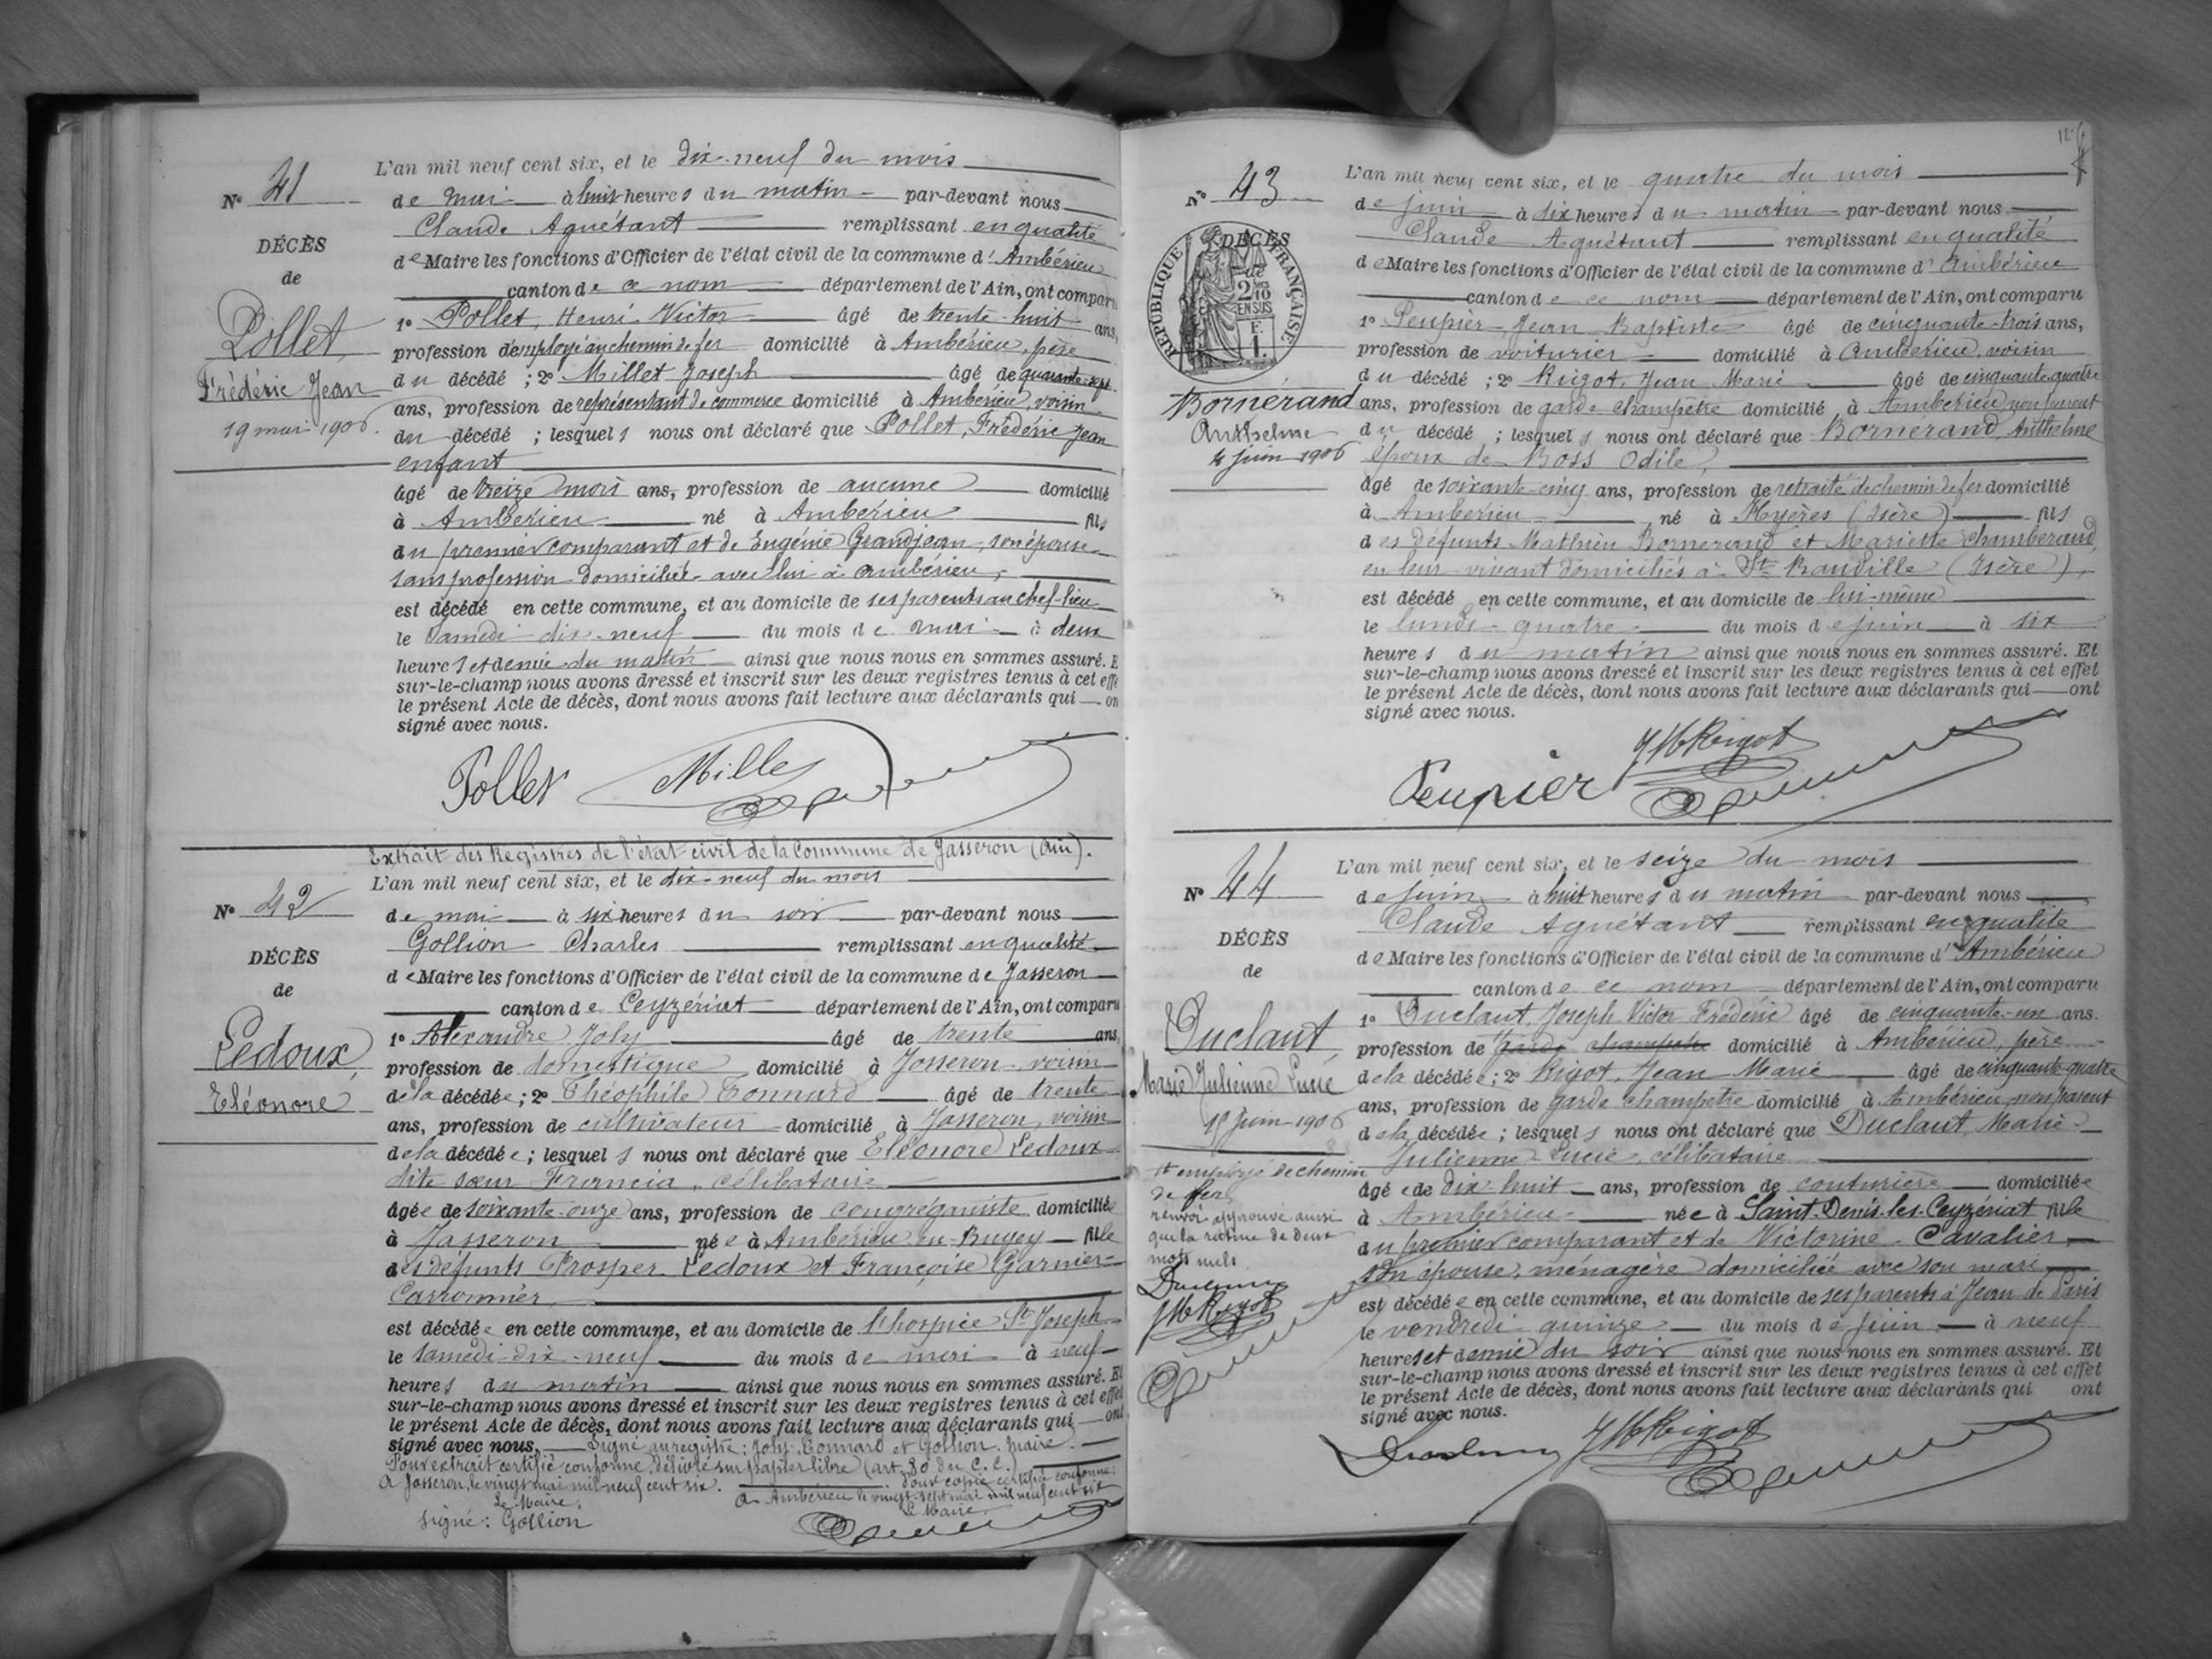 L'an mil neuf cent six, et le dix-neuf du mois
N° 41
de mai à huit heures du matin par-devant nous
Claude Aguétant remplissant en qualité
DÉCÈS
de Maire les fonctions d'Officier de l'état civil de la commune d'Ambérieu
de
canton de ce nom département de l'Ain, ont comparu
Pollet,
1° Pollet, Henri Victor âgé de trente-huit ans,
profession d'employé au chemin de fer domicilié à Ambérieu, père
Frédéric Jean
du décédé ; 2° Millet Joseph âgé de quarante-sept
ans, profession de représentant de commerce domicilié à Ambérieu, voisin
19 mai 1906.
du décédé ; lesquels nous ont déclaré que Pollet, Frédéric Jean
enfant
âgé de treize mois ans, profession de aucune domicilié
à Ambérieu né à Ambérieu fils
du premier comparant et de Eugénie Grandjean, son épouse
sans profession domiciliée avec lui à Ambérieu,
est décédé en cette commune, et au domicile de ses parents au chef-lieu
le Samedi dix-neuf du mois de mai à deux
heures et demie du matin ainsi que nous nous en sommes assuré. E
sur-le-champ nous avons dressé et inscrit sur les deux registres tenus à cet effe
le présent Acte de décès, dont nous avons fait lecture aux déclarants qui on
signé avec nous.
Pollet Millet
Extrait des Registres de l'état-civil de la Commune de Jasseron (Ain).
L'an mil neuf cent six, et le dix-neuf du mois
N° 42
de mai à six heures du soir par-devant nous
Gollion Charles remplissant en qualité
DÉCÈS
de Maire les fonctions d'Officier de l'état civil de la commune de Jasseron
de
canton de Ceyzériat département de l'Ain, ont comparu
Ledoux,
1° Alexandre Joly âgé de trente ans
profession de domestique domicilié à Jasseron, voisin
Eléonore
de la décédée ; 2° Théophile Tonnard âgé de trente
ans, profession de cultivateur domicilié à Jasseron, voisin
de la décédée ; lesquels nous ont déclaré que Eléonore Ledoux
dite sœur Francia, célibataire
âgée de soixante-onze ans, profession de congréganiste domiciliée
à Jasseron née à Ambérieu-en-Bugey fille
des défunts Prosper Ledoux et Françoise Garnier-
Carronnier
est décédée en cette commune, et au domicile de l'hospice St Joseph
le samedi dix-neuf du mois de mai à neuf
heures du matin ainsi que nous nous en sommes assuré. Et
sur-le-champ nous avons dressé et inscrit sur les deux registres tenus à cet effet
le présent Acte de décès, dont nous avons fait lecture aux déclarants qui ont
signé avec nous. Signé au registre : Joly, Tonnard et Gollion, maire.
Pour extrait certifié conforme, délivré sur papier libre (art. 80 du C. C.)
A Jasseron, le vingt mai mil neuf cent six.
Le Maire,
signé : Gollion
Pour copie certifiée conforme:
A Ambérieu le vingt-sept mai mil neuf cent six
Le Maire
L'an mil neuf cent six, et le quatre du mois
N° 43
de juin à dix heures du matin par-devant nous
Claude Aguétant remplissant en qualité
DÉCÈS
de
RÉPUBLIQUE FRANÇAISE
2/10
EN SUS
F.
1.
de Maire les fonctions d'Officier de l'état civil de la commune d'Ambérieu
canton de ce nom département de l'Ain, ont comparu
1° Peupier Jean Baptiste âgé de cinquante-trois ans,
profession de voiturier domicilié à Ambérieu, voisin
du décédé ; 2° Rigot, Jean Marie âgé de cinquante-quatre
Bornerand
ans, profession de garde champêtre domicilié à Ambérieu non parent
Anthelme
du décédé ; lesquels nous ont déclaré que Bornerand, Anthelme
4 juin 1906
époux de Boss Odile,
âgé de soixante-cinq ans, profession de retraité de chemin de fer domicilié
à Ambérieu né à Hyères (Isère) fils
des défunts Mathieu Bornerand et Mariette Chamberaud,
en leur vivant domiciliés à St Baudille (Isère),
est décédé en cette commune, et au domicile de lui-même
le lundi quatre du mois de juin à six
heures du matin ainsi que nous nous en sommes assuré. Et
sur-le-champ nous avons dressé et inscrit sur les deux registres tenus à cet effet
le présent Acte de décès, dont nous avons fait lecture aux déclarants qui ont
signé avec nous.
Peupier JM Rigot
L'an mil neuf cent six, et le seize du mois
N° 44
de juin à huit heures du matin par-devant nous
Claude Aguétant remplissant en qualité
DÉCÈS
de Maire les fonctions d'Officier de l'état civil de la commune d'Ambérieu
de
canton de ce nom département de l'Ain, ont comparu
Duclaut,
1° Duclaut, Joseph Victor Frédéric âgé de cinquante-un ans.
profession de garde champêtre domicilié à Ambérieu, père
Marie Julienne Lucie
de la décédée ; 2° Rigot, Jean Marie âgé de cinquante-quatre
ans, profession de garde champêtre domicilié à Ambérieu, non parent
15 juin 1906
de la décédée ; lesquels nous ont déclaré que Duclaut, Marie
Julienne Lucie, célibataire
employé de chemin
de fer
renvoi approuvé ainsi
que la rature de deux
mots nuls
âgée de dix huit ans, profession de couturière domiciliée
à Ambérieu née à Saint-Denis-les-Ceyzériat fille
du premier comparant et de Victorine Cavalier
son épouse, ménagère domiciliée avec son mari
JM Rigot
est décédée en cette commune, et au domicile de ses parents à Jean de Paris
le vendredi quinze du mois de juin à neuf
heures et demie du soir ainsi que nous nous en sommes assuré. Et
sur-le-champ nous avons dressé et inscrit sur les deux registres tenus à cet effet
le présent Acte de décès, dont nous avons fait lecture aux déclarants qui ont
signé avec nous.
JM Rigot